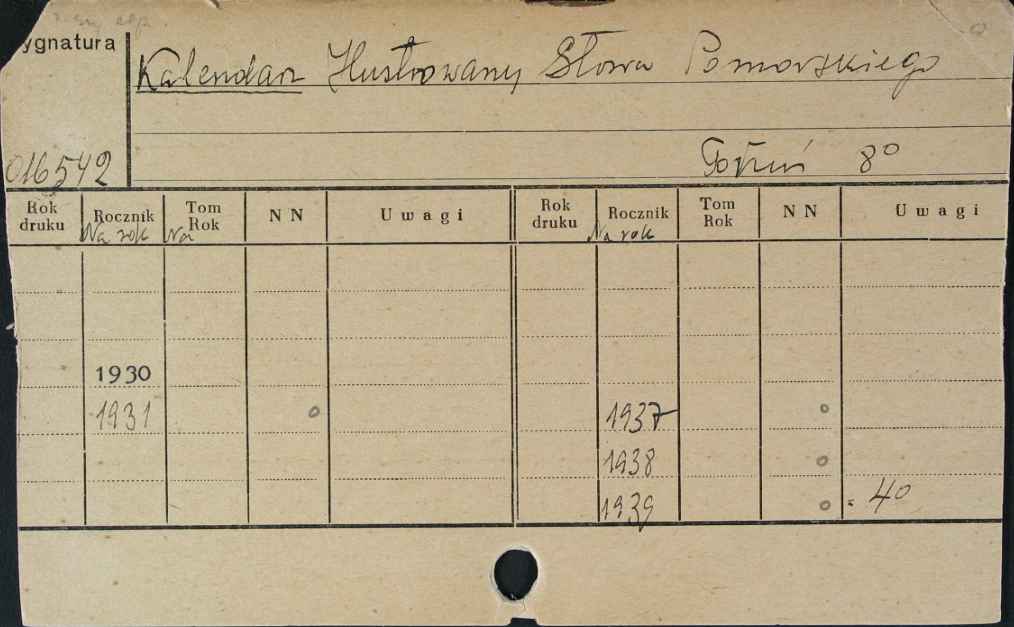 ygnatura
Kalendarz Ilustrowany Słowa Pomorskiego
016542
Toruń 8°
Rok druku Rocznik Tom Rok NN Uwagi Rok druku Rocznik Tom Rok NN Uwagi
Na rok Na Na rok
1930
1931 o 1937 o
1938 o
1939 o : 40